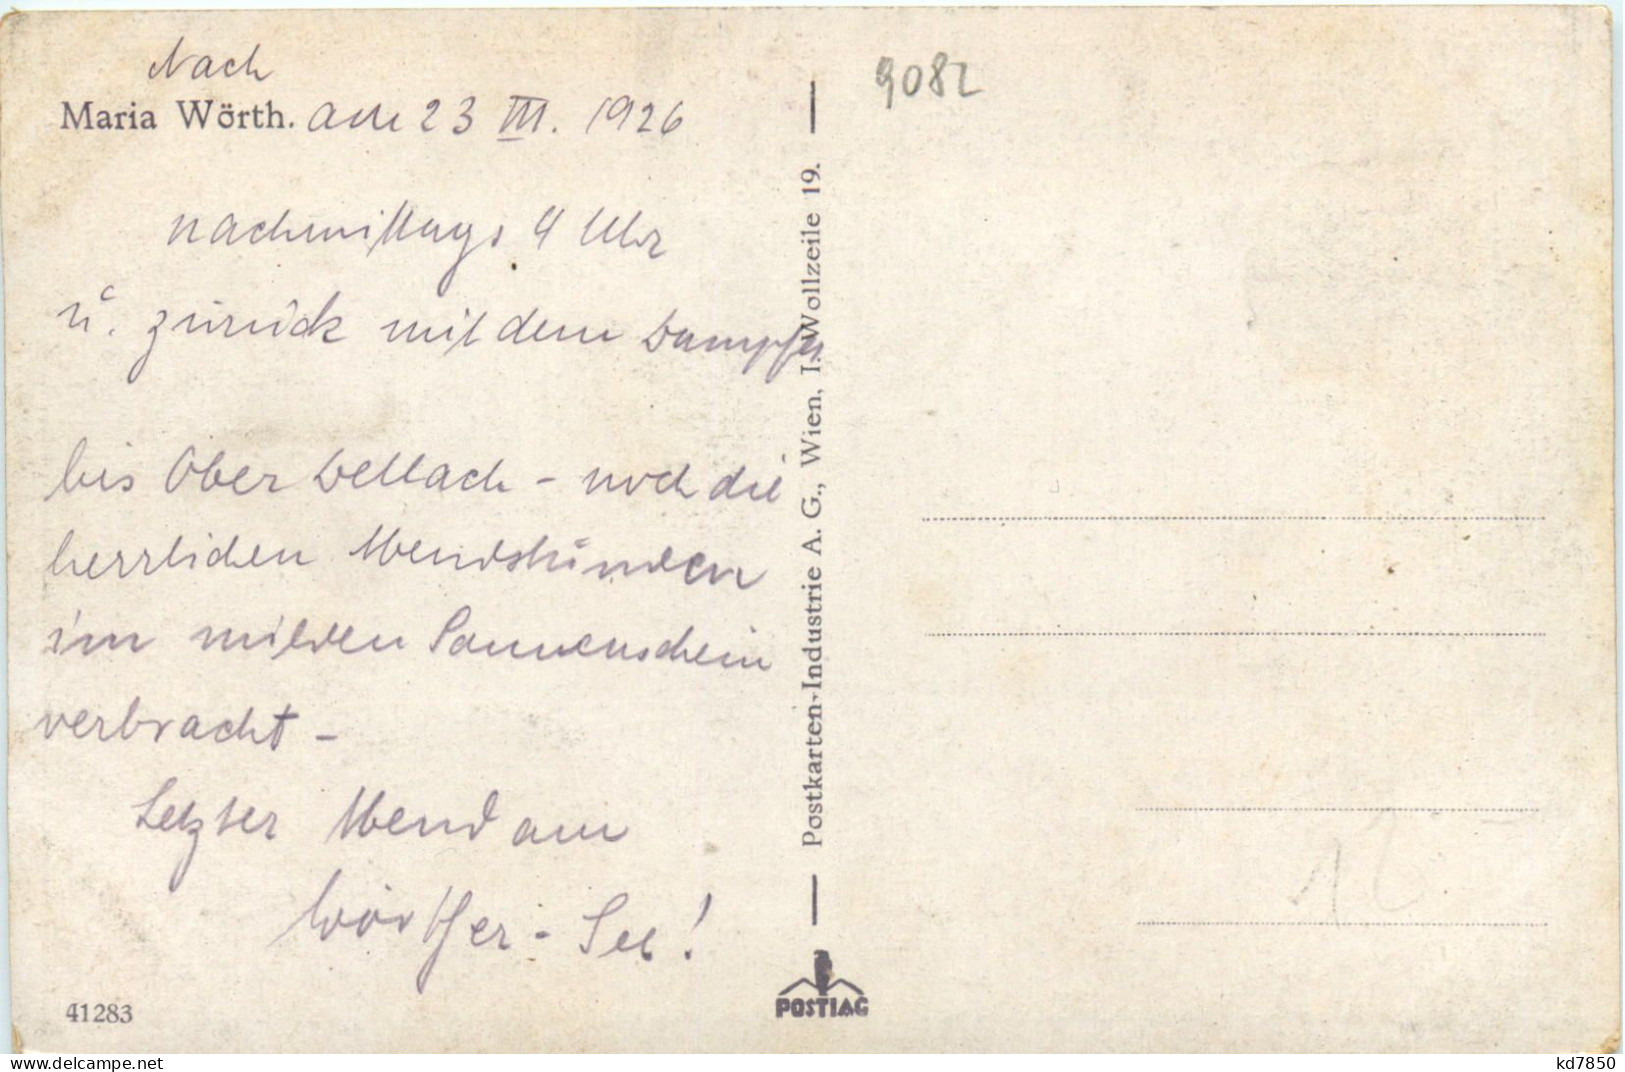 Nach
Maria Wörth. am 23 III. 1926
nachmittags 4 Uhr
u. zurück mit dem Dampfer
bis Ober Dellach - noch die
herrlichen Abendstunden
im milden Sonnenschein
verbracht -
Letzter Abend am
Wörther - See!
41283
Postkarten-Industrie A. G., Wien, I. Wollzeile 19.
POSTIAG
9082
12
delcampe.net
kd7850